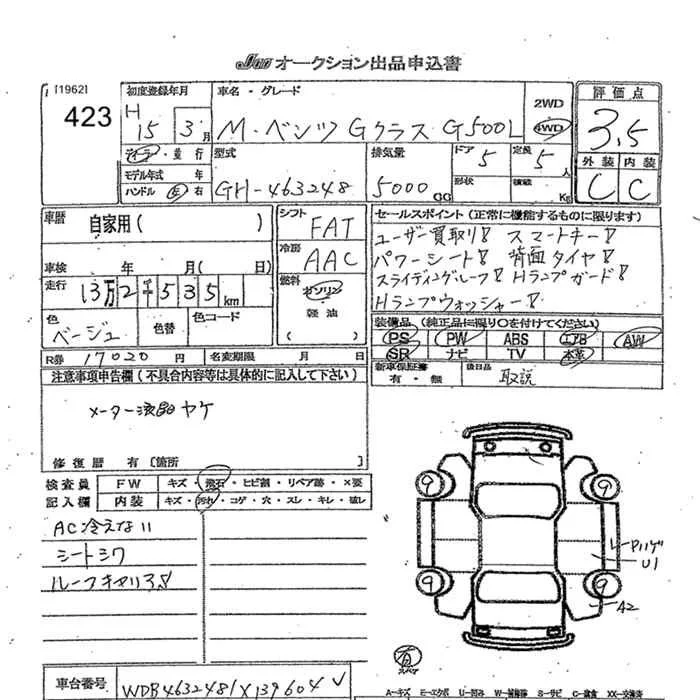 JU オークション出品申込書
[1962]
423
初度登録年月
H 15 3月
車名・グレード
M・ベンツ Gクラス G500L
2WD
4WD
評価点
3,5
外装 内装
C C
ディーラ・並行
モデル年式 年
ハンドル 左 右
型式
GH-463248
排気量
5000 CC
ドア 5
形状
定員 5 人
積載 Kg
車歴
自家用( )
車検 年 月( 日)
走行 13万2千535km
色 ベージュ
色替
色コード
R券 17020円
名変期限 月 日
シフト FAT
冷房 AAC
燃料 ガソリン
軽油
セールスポイント(正常に機能するものに限ります)
ユーザー買取り! スマートキー!
パワーシート! 背面タイヤ!
スライディングルーフ! Hランプガード!
Hランプウォッシャー!
装備品(純正品に限り〇を付けてください)
PS PW ABS エアB AW
SR ナビ TV 本革
新車保証書
有・無
後日品
取説
注意事項申告欄(不具合内容等は具体的に記入して下さい)
メーター液晶ヤケ
修復歴 有〔箇所 〕
検査員 FW キズ・飛石・ヒビ割・リペア跡・×要
記入欄 内装 キズ・汚れ・コゲ・穴・スレ・キレ・破レ
AC冷えない
シートシワ
ルーフキャリア!
9 9
U1
9 9
A2
有
スペア
車台番号 WDB4632481X139604
A-キズ E-エクボ U-凹み W-補修跡 S-サビ C-腐食 XX-交換済